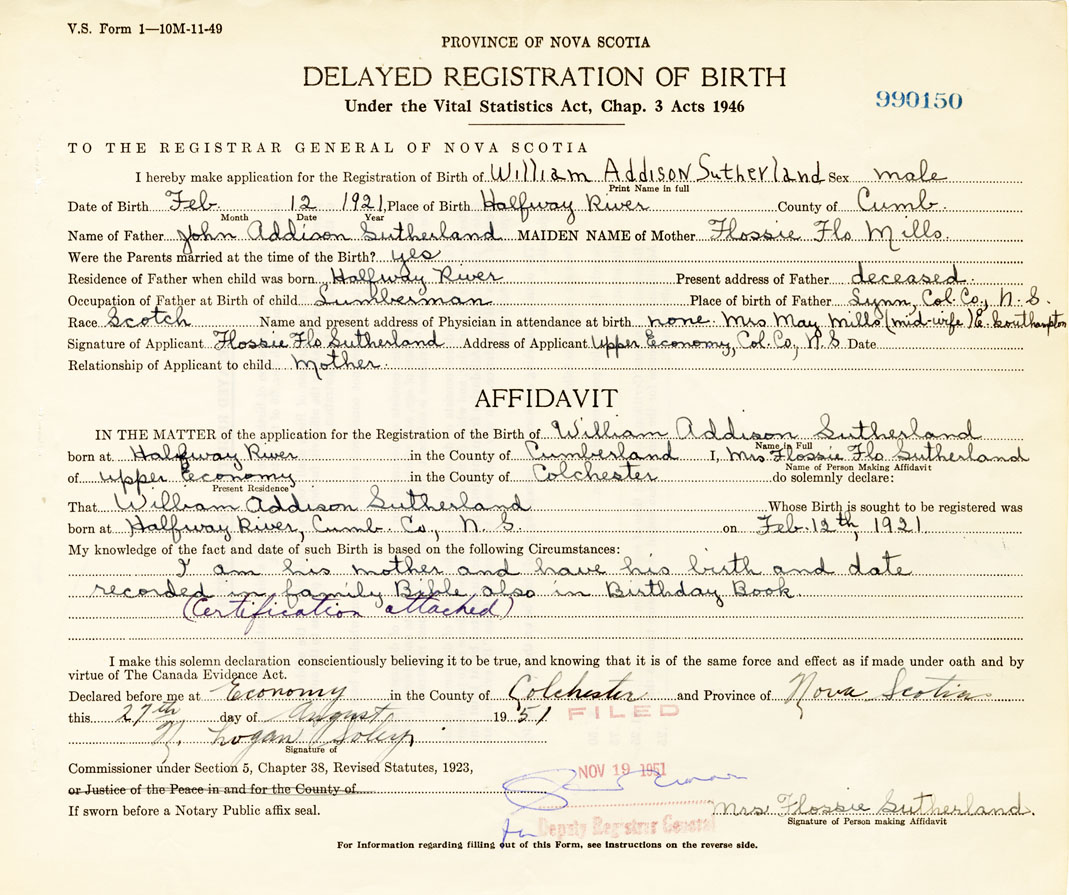 V.S. Form 1—10M-11-49
PROVINCE OF NOVA SCOTIA
DELAYED REGISTRATION OF BIRTH
Under the Vital Statistics Act, Chap. 3 Acts 1946
990150
TO THE REGISTRAR GENERAL OF NOVA SCOTIA
I hereby make application for the Registration of Birth of William Addison Sutherland Sex male
Print Name in full
Date of Birth Feb 12 1921 Place of Birth Halfway River County of Cumb.
Month Date Year
Name of Father John Addison Sutherland MAIDEN NAME of Mother Flossie Flo Mills.
Were the Parents married at the time of the Birth? yes
Residence of Father when child was born Halfway River Present address of Father deceased.
Occupation of Father at Birth of child Lumberman Place of birth of Father Lynn, Col. Co., N. S.
Race Scotch Name and present address of Physician in attendance at birth none. Mrs May Mills (mid-wife) E. Southampton
Signature of Applicant Flossie Flo Sutherland Address of Applicant Upper Economy, Col. Co., N. S. Date
Relationship of Applicant to child Mother.
AFFIDAVIT
IN THE MATTER of the application for the Registration of the Birth of William Addison Sutherland
Name in Full
born at Halfway River in the County of Cumberland I, Mrs Flossie Flo Sutherland
Name of Person Making Affidavit
of Upper Economy in the County of Colchester do solemnly declare:
Present Residence
That William Addison Sutherland Whose Birth is sought to be registered was
born at Halfway River, Cumb. Co., N. S. on Feb. 12th, 1921
My knowledge of the fact and date of such Birth is based on the following Circumstances:
I am his mother and have his birth and date
recorded in family Bible also in Birthday Book.
(Certification attached)
I make this solemn declaration conscientiously believing it to be true, and knowing that it is of the same force and effect as if made under oath and by
virtue of The Canada Evidence Act.
Declared before me at Economy in the County of Colchester and Province of Nova Scotia
this 27th day of August 1951
FILED
Logan
Signature of
Commissioner under Section 5, Chapter 38, Revised Statutes, 1923,
NOV 19 1951
or Justice of the Peace in and for the County of
If sworn before a Notary Public affix seal.
Mrs Flossie Sutherland.
Signature of Person making Affidavit
for Deputy Registrar General
For Information regarding filling out of this Form, see instructions on the reverse side.